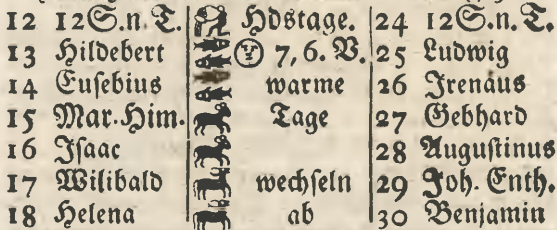 12 12S.n.T. Hdstage. 24 12S.n.T.
13 Hildebert 7, 6. V. 25 Ludwig
14 Eusebius warme 26 Irenäus
15 Mar.Him. Tage 27 Gebhard
16 Isaac 28 Augustinus
17 Wilibald wechseln 29 Joh. Enth.
18 Helena ab 30 Benjamin